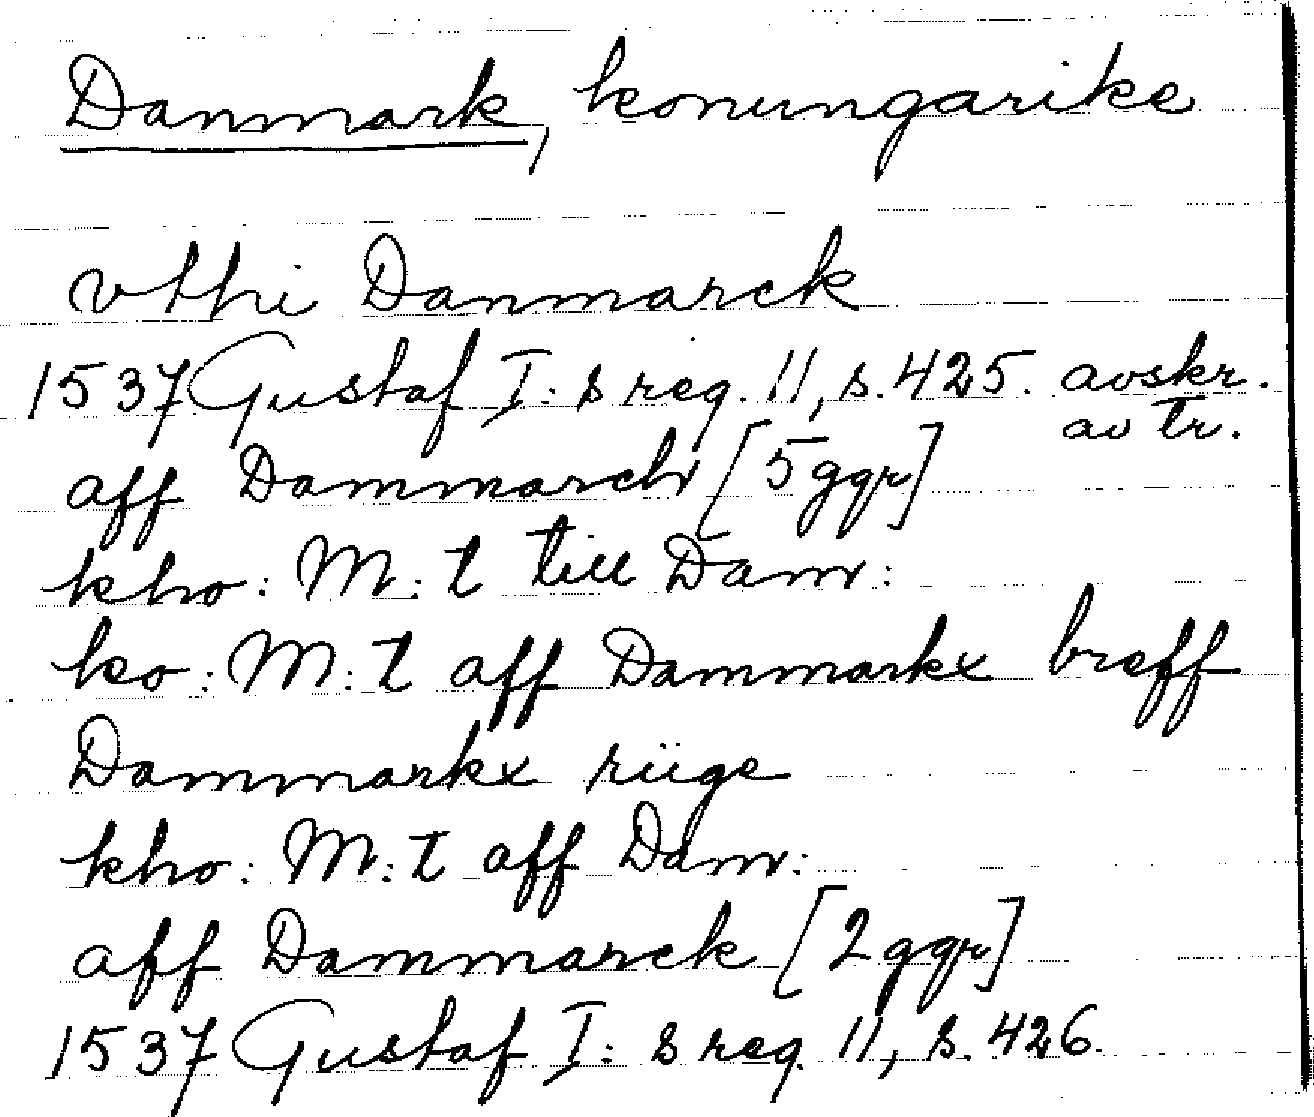 Danmark, konungarike
vthi Danmarck
1537 Gustaf I:s reg. 11, s. 425. avskr.
av tr.
aff Dammarck [5 ggr]
kho: M:t till Dam:
ko: M:t aff Dammarkx breff
Dammarkx rüge
kho: M:t aff Dam:
aff Dammarck [2 ggr]
1537 Gustaf I:s reg. 11, s. 426.